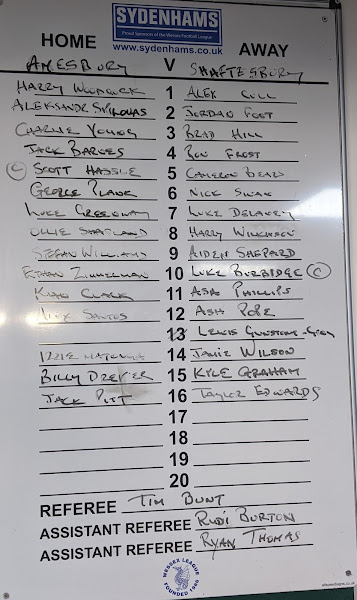 SYDENHAMS
Proud Sponsors of the Wessex Football League
www.sydenhams.co.uk
HOME AWAY
AMESBURY V SHAFTESBURY
HARRY 1 ALEX
ALEKSANDR 2 JORDAN
CHARLIE YOUNG 3 BRAD HILL
JACK BARNES 4 RON FROST
C SCOTT HASSLE 5 CAMERON BEARD
GEORGE PLANK 6 NICK SWAN
LUKE GREENWAY 7 LUKE DELANEY
OLLIE 8 HARRY WILKINSON
STEFAN WILLIAMS 9 AIDEN SHEPARD
ETHAN ZIMMERMAN 10 LUKE BURBIDGE C
KING CLARK 11 ASA PHILLIPS
ALEX SANTOS 12 ASH POPE
13 LEWIS
IZZIE 14 JAMIE WILSON
BILLY DREWER 15 KYLE GRAHAM
JACK PITT 16 TAYLOR EDWARDS
17
18
19
20
REFEREE TIM BUNT
ASSISTANT REFEREE RUDI BURTON
ASSISTANT REFEREE RYAN THOMAS
WESSEX LEAGUE
FOUNDED 1986